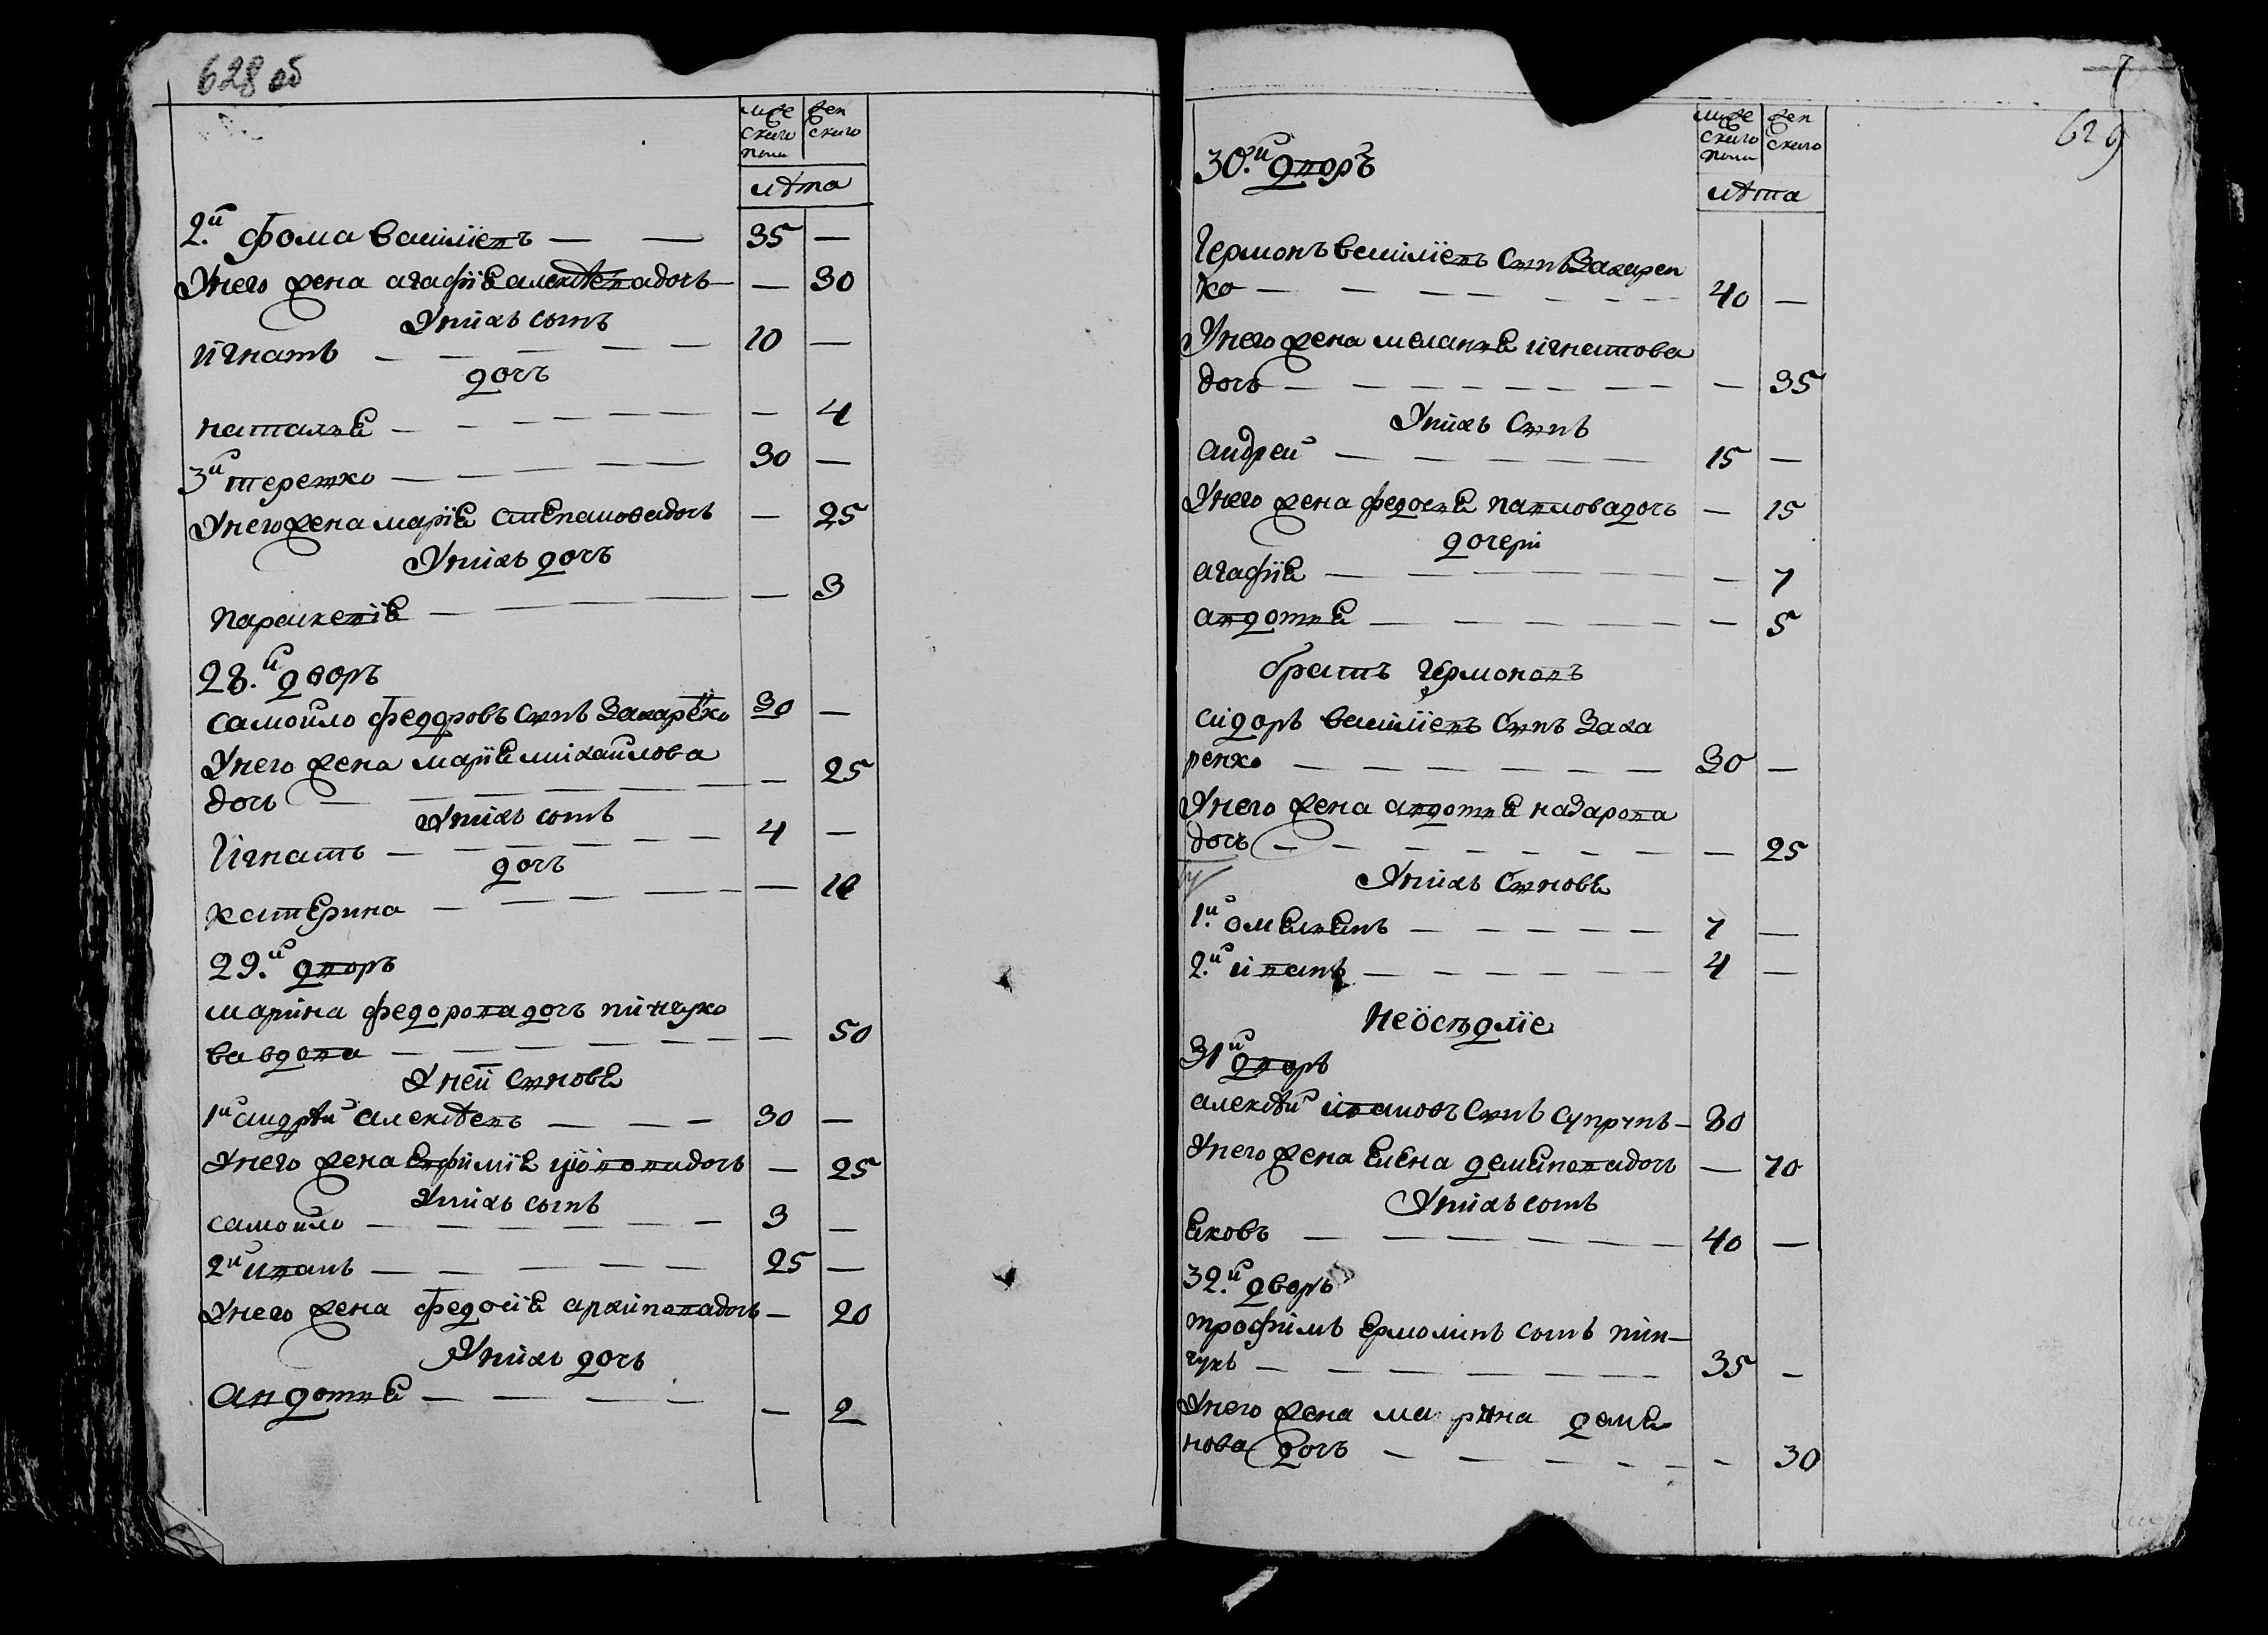 628 об
муже
ского
пола
жен
ского
лѣта
2.й Фома Василіевъ — — 35 —
У него жена агафія алексѣева дочь — — 30
У них сынъ
игнатъ — — — — — 10 —
дочь
наталья — — — — — — 4
3й терешко — — — — 30 —
У него жена марія степанова дочь — 25
У них дочь
параскевія — — — — — 3
28.й дворъ
самойло федоровъ сынъ Захарѣнко 30 —
У него жена марія михайлова
дочь — — — — — — 25
У них сынъ
Игнатъ — — — — — — 4 —
дочь
катерина — — — — —
29.й дворъ
марина федорова дочь пинчуко
ва вдова — — — — — — — 50
У ней сыновя
1й андрѣй алексѣевъ — — — 30 —
У него жена евфимія дочь — 25
У них сынъ
самойло — — — — — — 3 —
2й иванъ — — — — — 25 —
У него жена федосія архипова дочь — 20
У них дочь
авдотья — — — — — 2
7
629
муже
ского
пола
жен
ского
лѣта
30.й дворъ
Гермонъ василіевъ сынъ Захарен
ко — — — — — — — 40 —
У него жена меланья игнатова
дочь — — — — — — — — 35
У них сынъ
андрей — — — — — 15 —
У него жена федосья павлова дочь — 15
дочери
агафія — — — — — — 7
авдотья — — — — — 5
братъ гермоновъ
сидоръ василіевъ сынъ Заха
ренко — — — — — — 30 —
У него жена авдотья назарова
дочь — — — — — — — — 25
У них сыновя
1.й омельянъ — — — — — 7 —
2.й иванъ — — — — — — 4 —
Неосѣдліе
31й дворъ
алексѣй ивановъ сынъ супрунъ — 80
У него жена елена демянова дочь — 70
У них сынъ
яковъ — — — — — — 40 —
32.й дворъ
трофимъ ермолинъ сынъ пин—
чукъ — — — — — — 35 —
У него жена марина демя
нова дочь — — — — — — 30